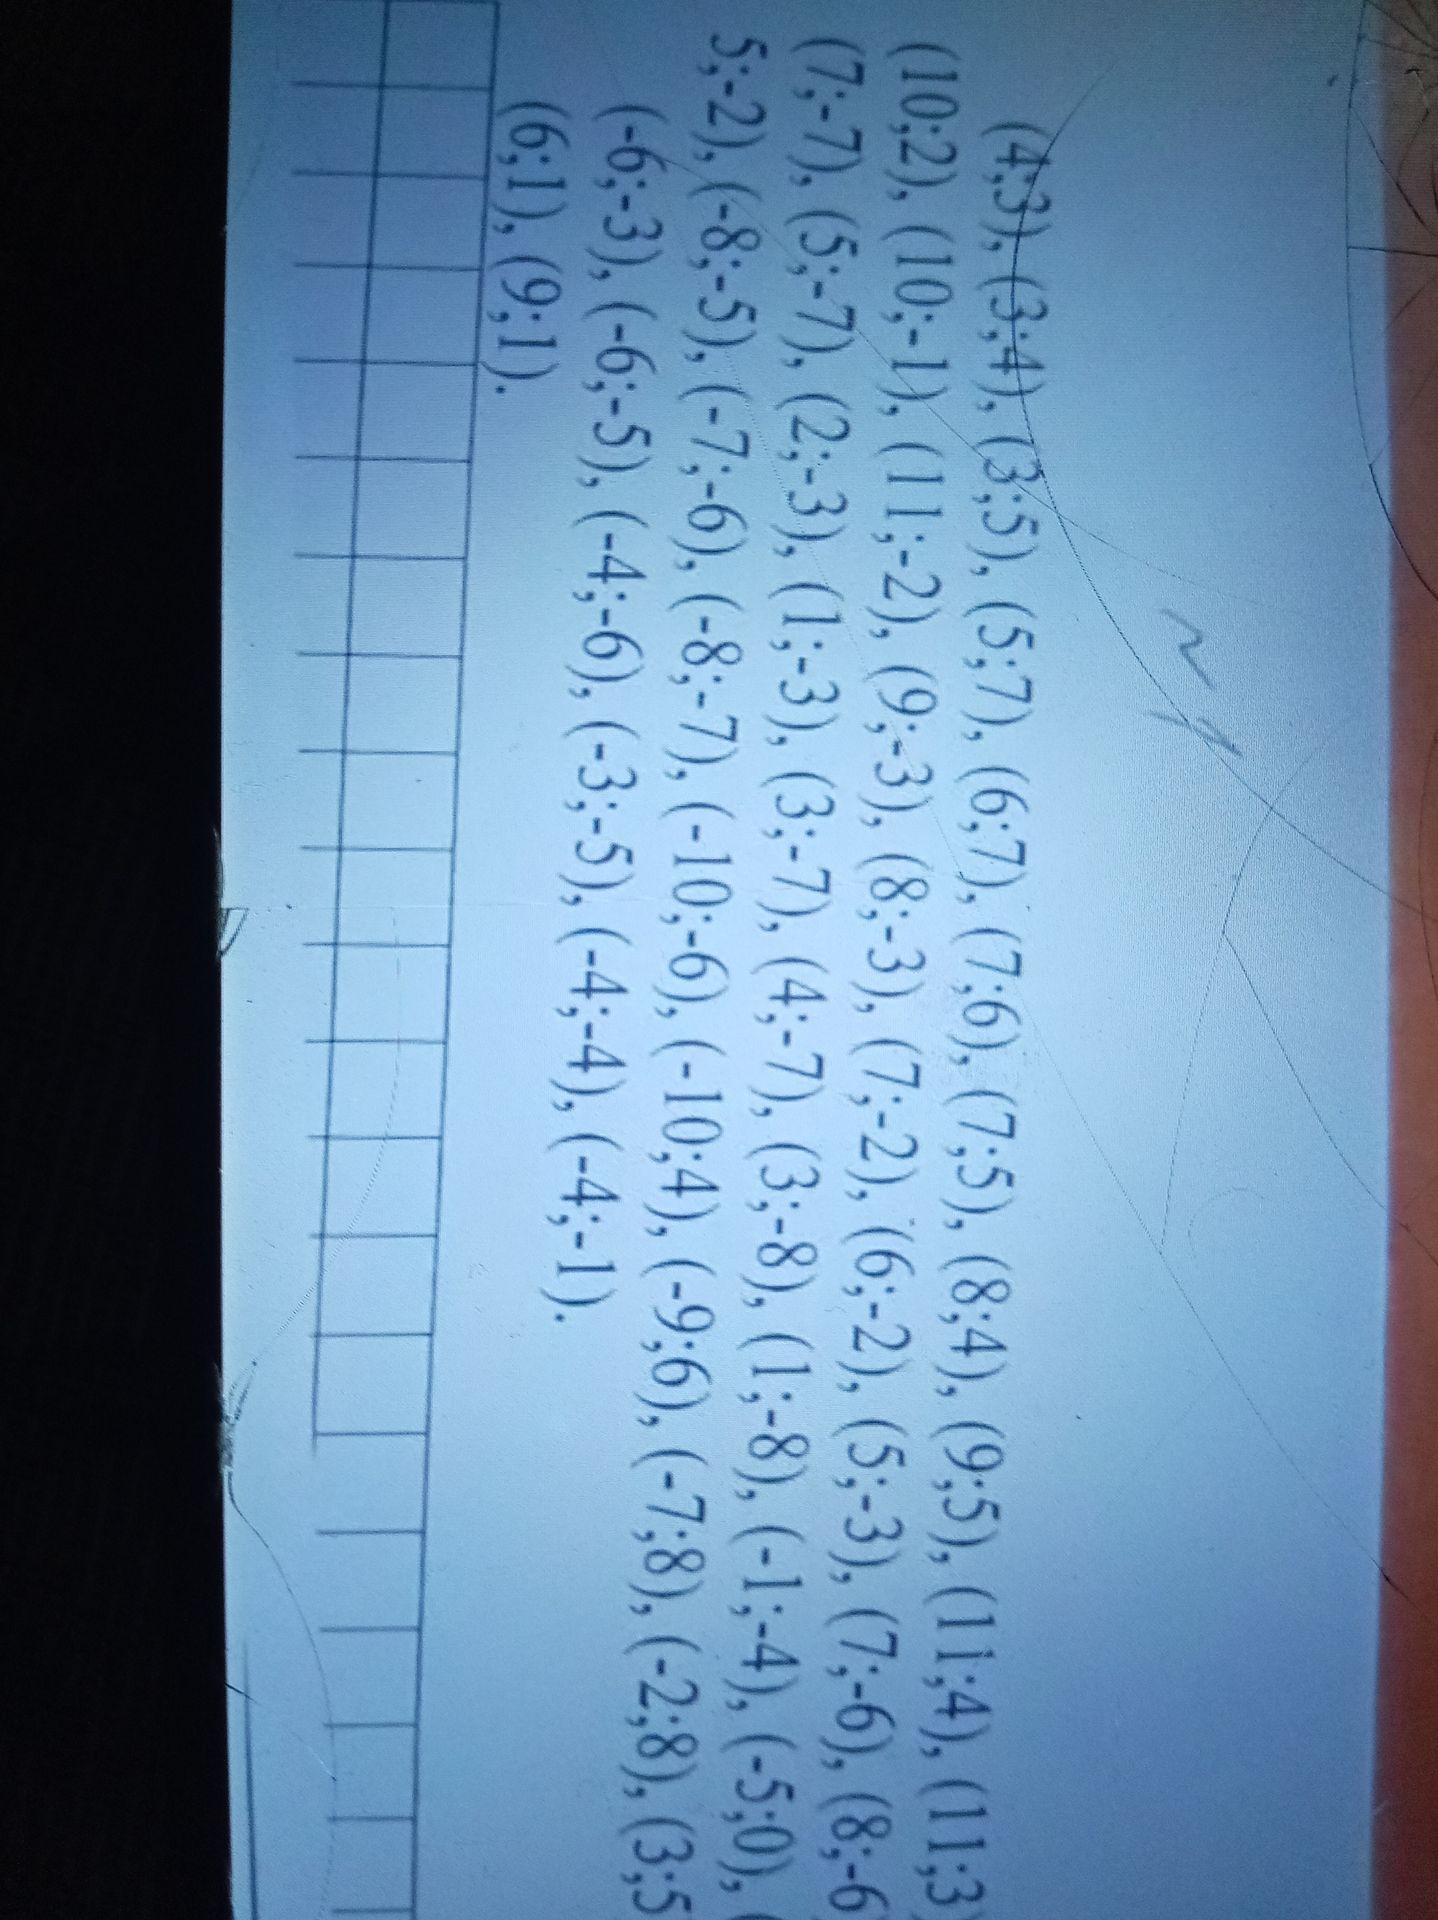 (4;3), (3;4), (3;5), (5;7), (6;7), (7;6), (7;5), (8;4), (9;5), (11;4), (11;3)
(10;2), (10;-1), (11;-2), (9;-3), (8;-3), (7;-2), (6;-2), (5;-3), (7;-6), (8;-6
(7;-7), (5;-7), (2;-3), (1;-3), (3;-7), (4;-7), (3;-8), (1;-8), (-1;-4), (-5;0), (
5;-2), (-8;-5), (-7;-6), (-8;-7), (-10;-6), (-10;4), (-9;6), (-7;8), (-2;8), (3;5
(-6;-3), (-6;-5), (-4;-6), (-3;-5), (-4;-4), (-4;-1).
(6;1), (9;1).